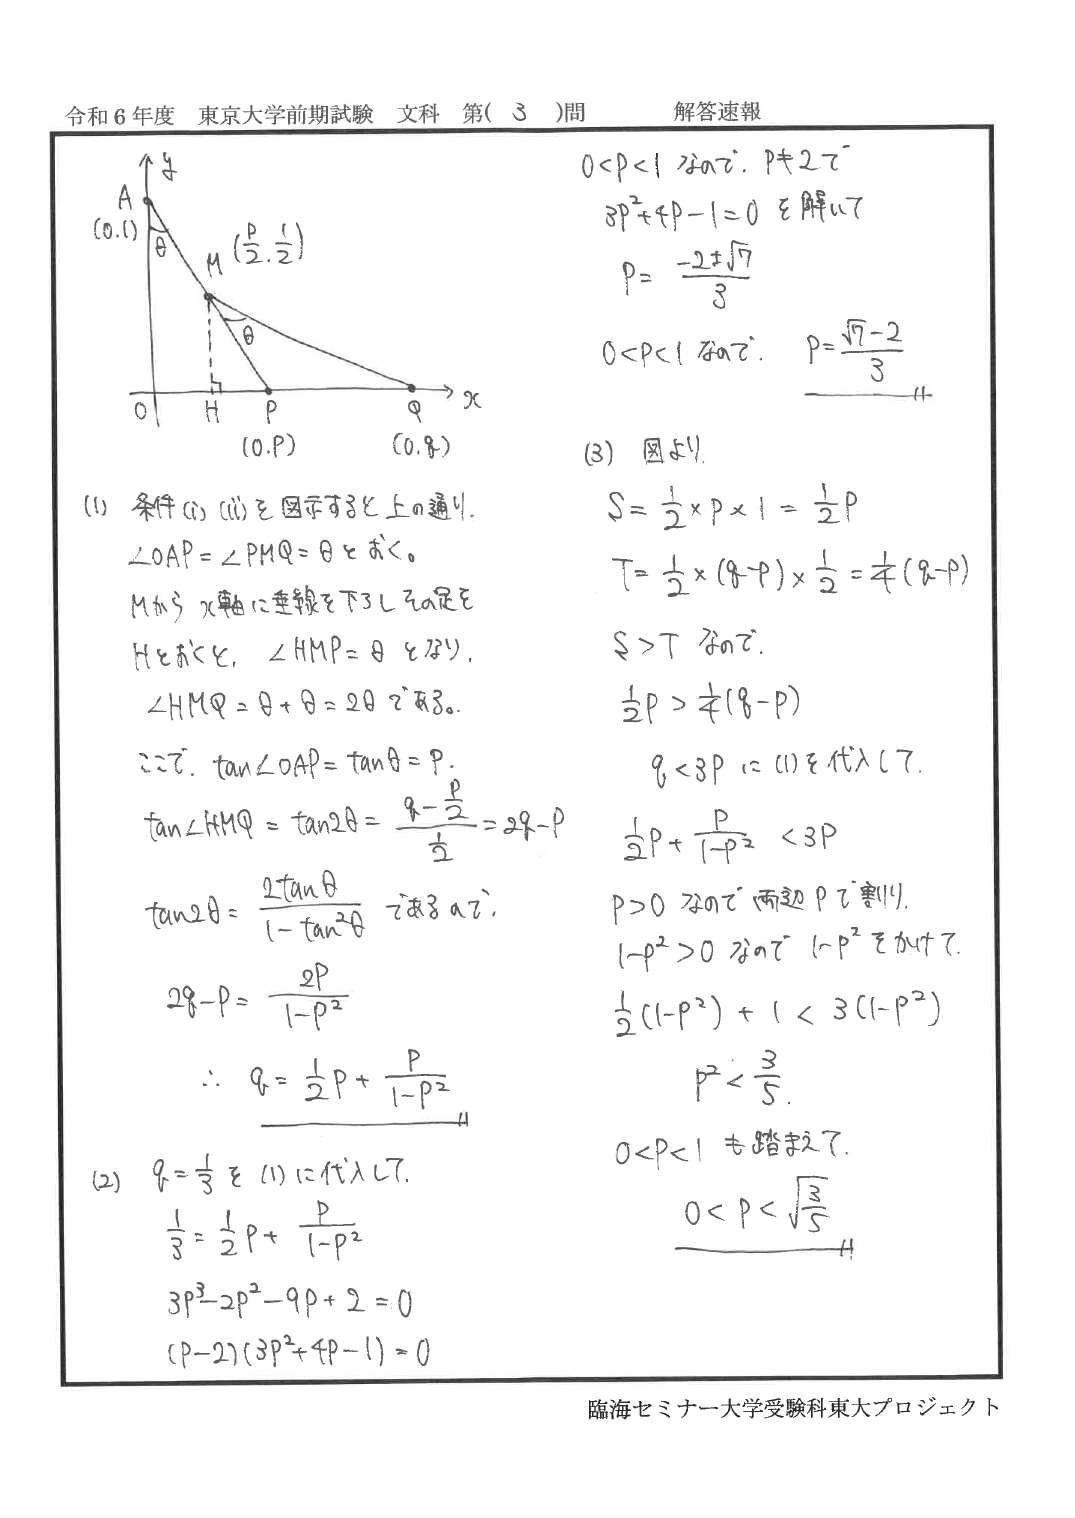 令和6年度 東京大学前期試験 文科 第( 3 )問 解答速報
y
A
(0.1)
θ
M (p/2.1/2)
θ
O H P Q x
(0.P) (0.q)
(1) 条件(i)(ii)を図示すると上の通り.
∠OAP=∠PMQ=θとおく。
Mからx軸に垂線を下ろしその足を
Hとおくと, ∠HMP=θとなり,
∠HMQ=θ+θ=2θである。
ここで, tan∠OAP=tanθ=P.
tan∠HMQ = tan2θ = (q-p/2)/(1/2) = 2q-P
tan2θ = 2tanθ/(1-tan²θ) であるので,
2q-P = 2P/(1-P²)
∴ q = 1/2 P + P/(1-P²)
(2) q=1/3を(1)に代入して.
1/3 = 1/2 P + P/(1-P²)
3P³-2P²-9P+2=0
(P-2)(3P²+4P-1)=0
0<P<1 なので. P≠2で
3P²+4P-1=0 を解いて
P= (-2±√7)/3
0<P<1 なので. P=(√7-2)/3
(3) 図より.
S= 1/2×P×1 = 1/2 P
T= 1/2×(q-P)×1/2 = 1/4(q-P)
S>T なので.
1/2 P > 1/4(q-P)
q<3P に(1)を代入して.
1/2 P + P/(1-P²) < 3P
P>0 なので両辺Pで割り.
1-P²>0 なので 1-P²をかけて.
1/2(1-P²) + 1 < 3(1-P²)
P² < 3/5.
0<P<1 も踏まえて.
0 < P < √(3/5)
臨海セミナー大学受験科東大プロジェクト